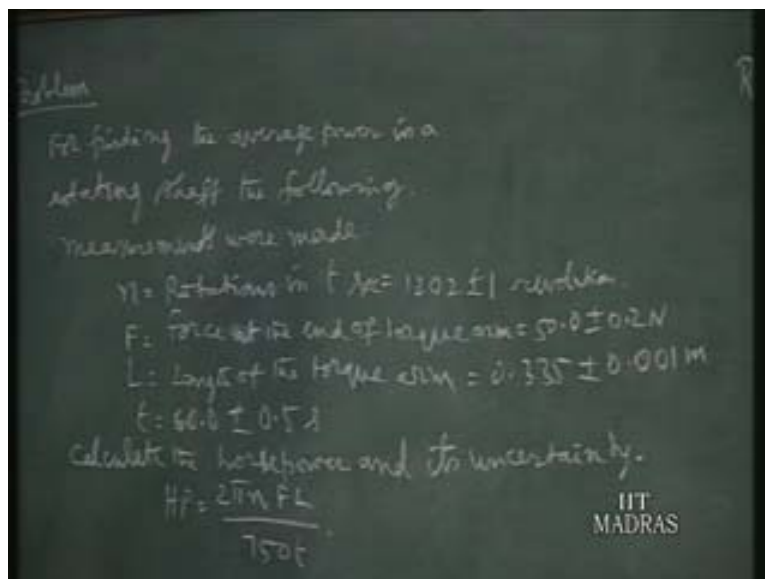 Problem
R
For finding the average power in a
rotating shaft the following.
measurements were made
n = Rotations in t sec = 1202 ± 1 revolution.
F = Force at the end of torque arm = 50.0 ± 0.2 N
L = Length of the torque arm = 0.335 ± 0.001 m
t = 60.0 ± 0.5 s
Calculate the horsepower and its uncertainty.
HP = 2πn FL
750t
IIT
MADRAS